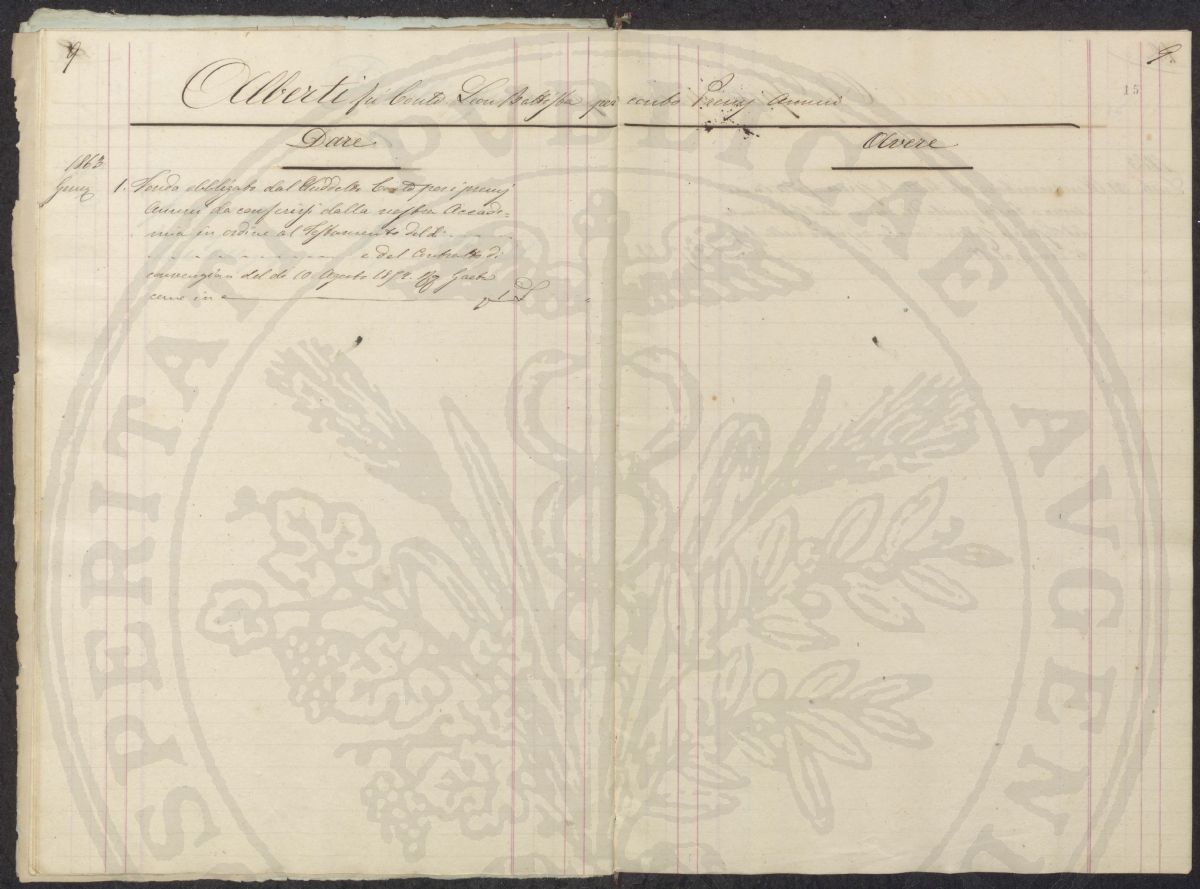 9
9
15
Alberti fù Conte Leon Battista per conto Premj Annui
Dare
Avere
1863
Genn 1. Fondo obbligato dal suddetto Conte per i premj
Annui da conferirsi dalla nostra Accade-
mia in ordine al Testamento del dì
e del Contratto di
convenzioni del dì 10 Agosto 1852.
come in
PROSPERITATI PUBLICAE AUGENDAE